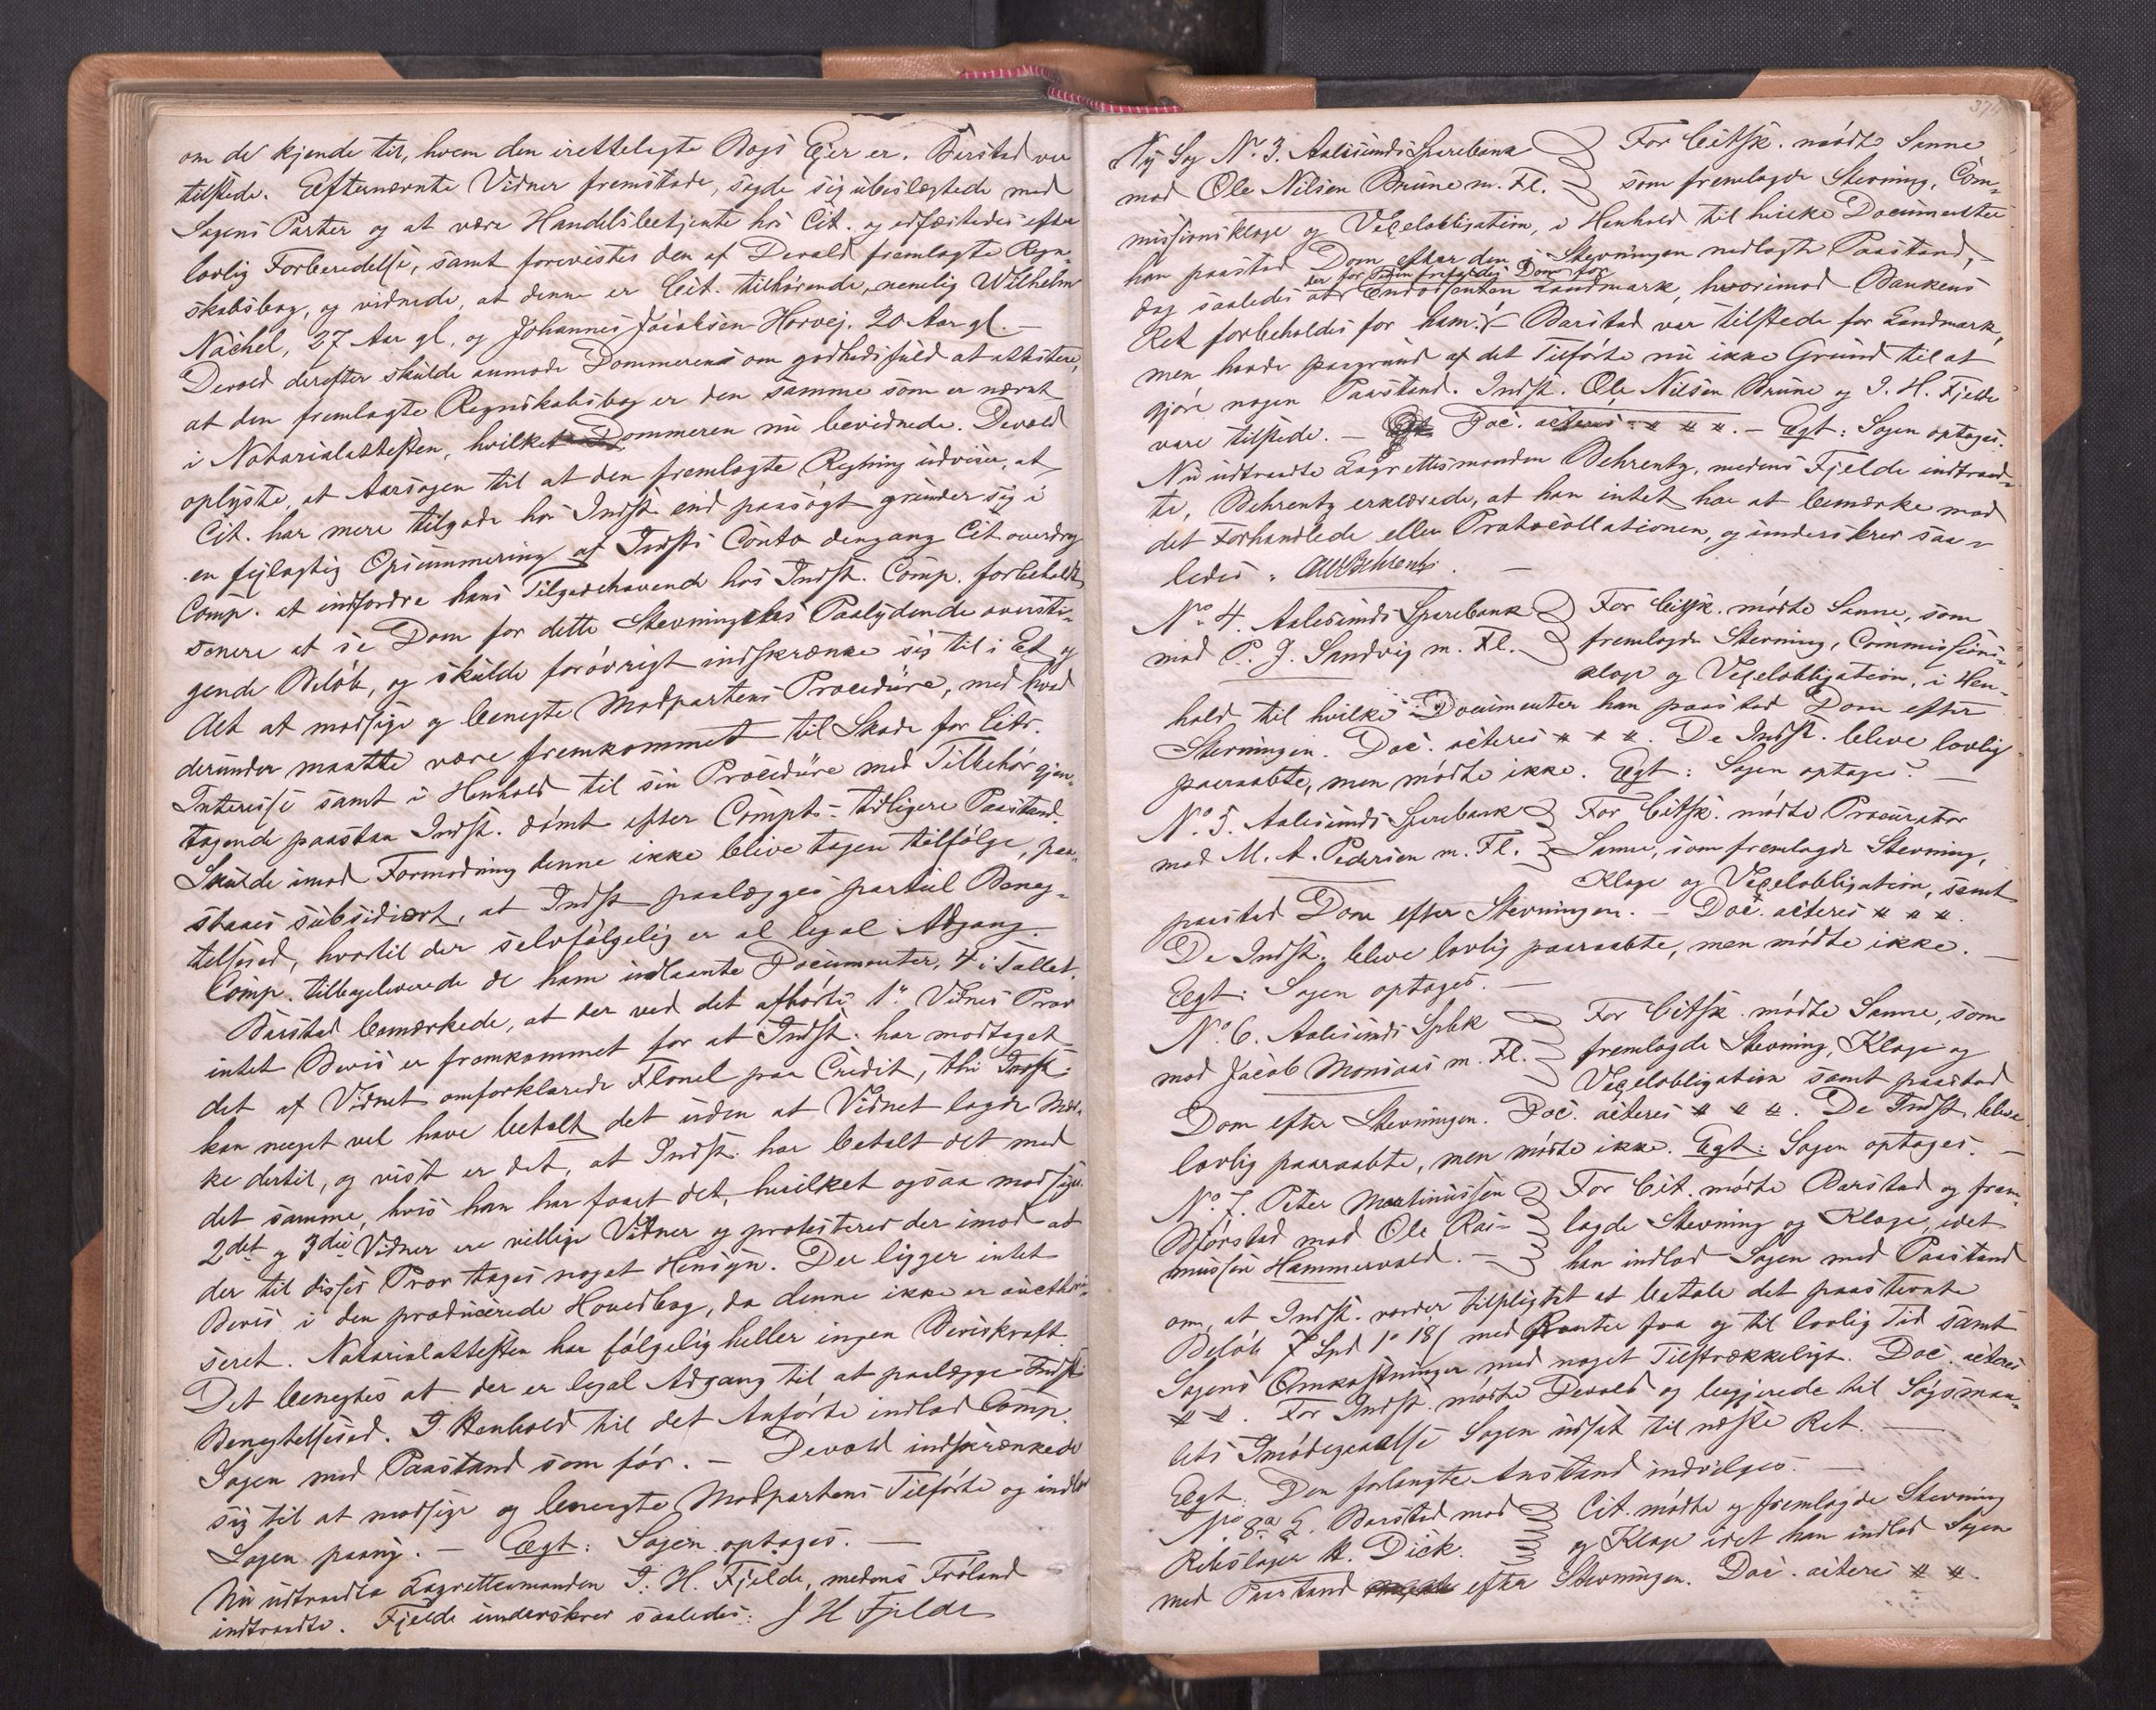 om de kjende til, hvem den irettelagte Bogs Ejer er. Barstad var
tilstede. Efternævnte Vidner fremstode, sagde sig ubeslægtede med
Sagens Parter og at være Handelsbetjente hos Cit. og edfæstedes efter
lovlig Forberedelse, samt forevistes den af Devold fremlagte Regn-
skabsbog, og vidnede, at denne er Cit. tilhørende, nemlig Wilhelm
Nachel, 27 Aar gl, og Johannes Jacobsen Horvej. 20 Aar gl. —
Devold derefter skulde anmode Dommeren om godhedsfuld at attestere,
at den fremlagte Regnskabsbog er den samme som er nævnt
i Notarialattesten, hvilket Dommeren nu bevidnede. Devold
oplyste, at Aarsagen til at den fremlagte Regning udviser, at
Cit. har mere tilgode hos Indst. end paasøgt grunder sig i
en fejlagtig Opsummering af Indsts Conto dengang Cit. overdrog
Comp. at indfordre hans Tilgodehavende hos Indst. Comp. forbeholdt
senere at se Dom for dette Stevningens Paalydende oversti-
gende Beløb, og skulde forøvrigt indskrænke sig til i Et og
Alt at modsige og benegte Modpartens Procedüre, med hvad
derunder maatte være fremkommet til Skade for Cits.
Interesse samt i Henhold til sin Procedüre med Tilbehør gjen-
tagende paastaa Indst. dømt efter Compts tidligere Paastand.
Skulde imod Formodning denne ikke blive tagen tilfølge, paa-
staaes subsidiært, at Indst paalægges partiel Beneg-
telsesed, hvortil der selvfølgelig er al legal Adgang.
Comp. tilbageleverede de ham udlaante Documenter, 4 i Tallet.
Barstad bemærkede, at der ved det afhørte 1ste Vidnes Prov
intet Bevis er fremkommet for at Indst. har modtaget
det af Vidnet omforklarede Flonel paa Credit, thi Indst.
kan meget vel have betalt det uden at Vidnet lagde Mær-
ke dertil, og vist er det, at Indst. har betalt det med
det samme, hvis han har faaet det, hvilket ogsaa modsiges.
2det og 3die Vidner ere villige Vidner og protesteres der imod at
der til disses Prov tages noget Hensyn. Der ligger intet
Bevis i den producerede Hovedbog, da denne ikke er authori-
seret. Notarialattesten har følgelig heller ingen Beviskraft.
Det benegtes at der er legal Adgang til at paalægge Indst.
Benegtelsesed. I Henhold til det Anførte indlod Comp.
Sagen med Paastand som før. — Devold indskrænkede
sig til at modsige og benegte Modpartens Tilførte og indlod
Sagen paany. — Egt: Sagen optages. —
Nu udtraadte Lagrettesmanden J. H. Fjelde, medens Frøland
indtraadte. Fjelde underskrev saaledes: J H Fjelde
Ny Sag No. 3. Aalesunds Sparebank
mod Ole Nilsen Brune m. Fl.
For Citsk. mødte Sanne
som fremlagde Stevning, Com-
missionsklage og Vexelobligation, i Henhold til hvilke Documenter
han paastod Dom efter den i Stevningen nedlagte Paastand,
der for Tiden frafaldes Dom for
dog saaledes at Endossenten Landmark, hvorimod Bankens
Ret forbeholdes for ham. — Barstad var tilstede for Landmark,
men havde paagrund af det Tilførte nu ikke Grund til at
gjøre nogen Paastand. Indst. Ole Nilsen Brune og J. H. Fjelde
vare tilstede. — Doc. acteres # # #. — Egt: Sagen optages.
Nu udtraadte Lagrettesmanden Behrentz, medens Fjelde indtraad-
te. Behrentz erklærede, at han intet har at bemærke mod
det Forhandlede eller Protocollationen, og underskrev saa-
ledes: AWBehrentz. —
No. 4. Aalesunds Sparebank
mod P. J. Sandvig m. Fl.
For Citsk. mødte Sanne, som
fremlagde Stevning, Commissions-
klage og Vexelobligation, i Hen-
hold til hvilke Documenter han paastod Dom efter
Stevningen. Doc. acteres # # #. De Indst. bleve lovlig
paaraabte, men mødte ikke. Egt: Sagen optages. —
No. 5. Aalesunds Sparebank
mod M. A. Pedersen m. Fl.
For Citsk. mødte Procurator
Sanne, som fremlagde Stevning,
Klage og Vexelobligation, samt
paastod Dom efter Stevningen. — Doc. acteres # # #.
De Indst. bleve lovlig paaraabte, men mødte ikke. —
Egt: Sagen optages. —
No. 6. Aalesunds Spbk
mod Jacob Monsaas m. Fl.
For Citsk. mødte Sanne, som
fremlagde Stevning, Klage og
Vexelobligation samt paastod
Dom efter Stevningen. Doc. acteres # # #. De Indst. bleve
lovlig paaraabte, men mødte ikke. Egt: Sagen optages. —
No. 7. Peter Martinussen
Mørstad mod Ole Ras-
mussen Hammervold. —
For Cit. mødte Barstad og frem-
lagde Stevning og Klage, idet
han indlod Sagen med Paastand
om, at Indst. vorder tilpligtet at betale det paastevnte
Beløb 7 Spd 1 # 18 ß med Renter fra og til lovlig Tid samt
Sagens Omkostninger med noget Tilstrækkeligt. Doc. acteres
# #. For Indst. mødte Devold og begjerede til Søgsmaa-
lets Imødegaaelse Sagen udsat til næste Ret. —
Egt: Den forlangte Anstand indvilges. —
No. 8. Barstad mod
Rebslager H. Dick.
Cit. mødte og fremlagde Stevning
og Klage idet han indlod Sagen
med Paastand efter Stevningen. Doc. acteres # #.